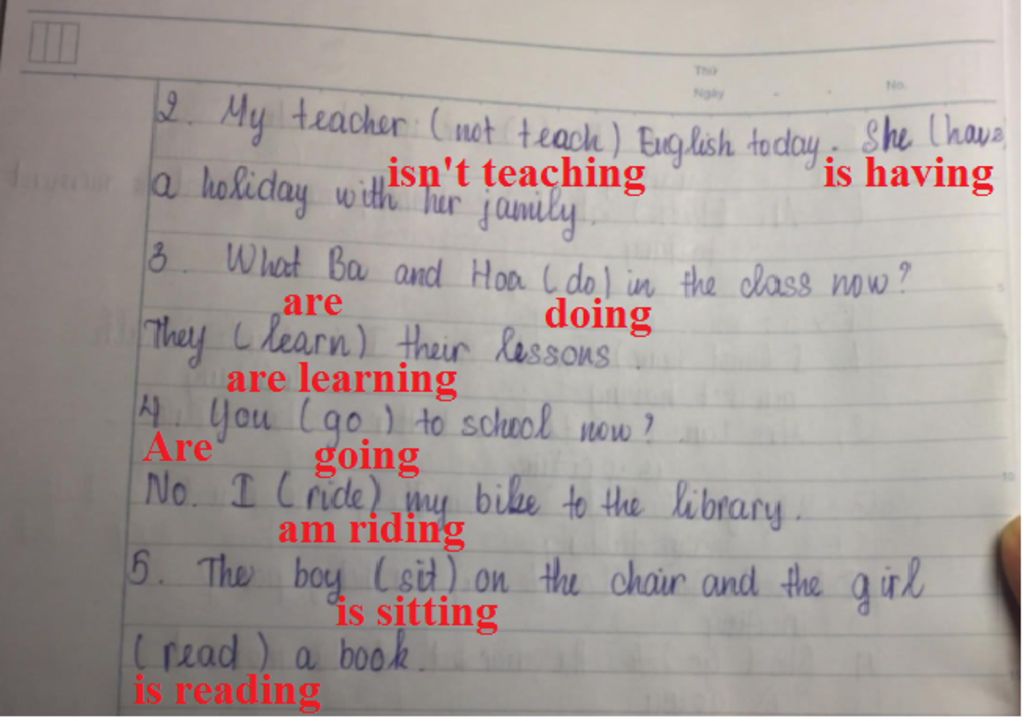 Thứ
Ngày No.
2. My teacher (not teach) English today. She (have
isn't teaching is having
a holiday with her family.
3. What Ba and Hoa (do) in the class now?
are doing
They (learn) their lessons.
are learning
4. You (go) to school now?
Are going
No. I (ride) my bike to the library.
am riding
5. The boy (sit) on the chair and the girl
is sitting
(read) a book.
is reading